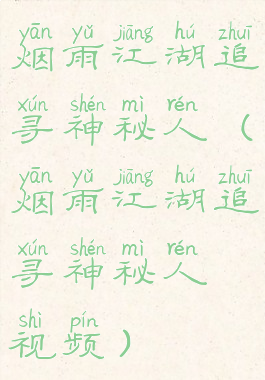 yān yǔ jiāng hú zhuī
烟雨江湖追
xún shén mì rén
寻神秘人（
yān yǔ jiāng hú zhuī
烟雨江湖追
xún shén mì rén
寻神秘人
shì pín
视频）